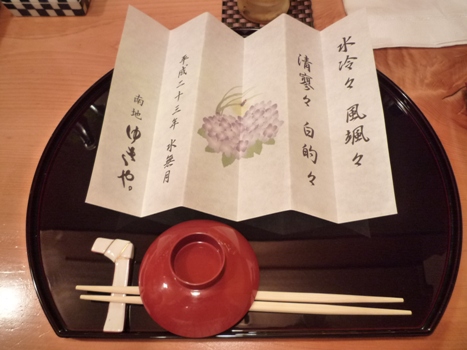 水冷々 風颯々
清寥々 白的々
平成二十三年 水無月
南地 ゆきや。